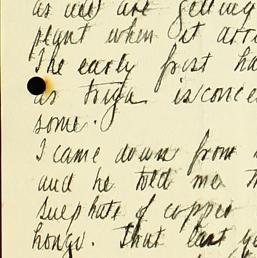 as we are getting
plant when it arri
The early frost ha
as            is conce
some.
I came down from
and he told me th
Sulphate of copper
           That last ye